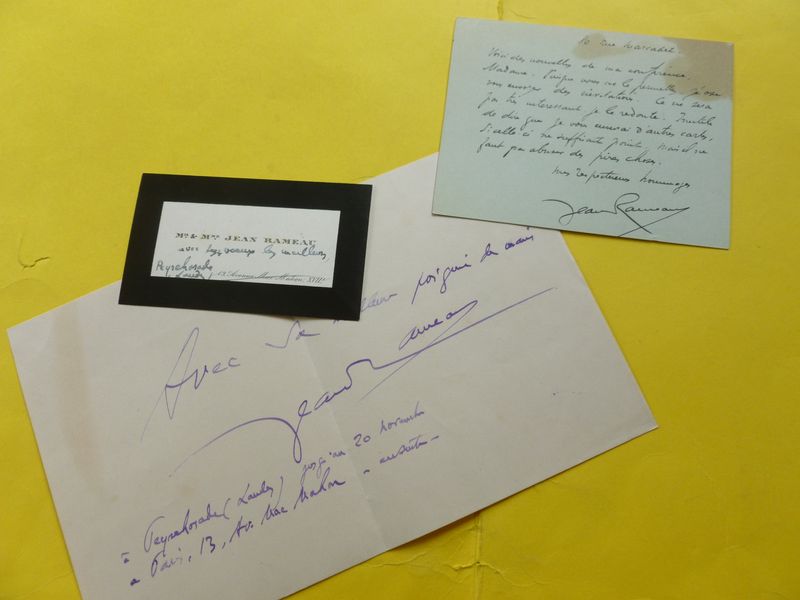 Mr & Mme JEAN RAMEAU
avec leurs voeux les meilleurs
Peyrehorade
(Landes) 13 Avenue Mac-Mahon. XVIIe
rue Marcadet.
Voici des nouvelles de ma conférence,
Madame. Puisque vous me le permettez, j'ose
vous envoyer des invitations. Ce ne sera
pas très intéressant je le redoute. Inutile
de dire que je vous enverrai d'autres cartes,
si celles ci ne suffisaient point, mais il ne
faut pas abuser des pires choses.
Mes respectueux hommages
Jean Rameau
Avec la meilleure poignée de main
Jean Rameau
à Peyrehorade (Landes) jusqu'au 20 novembre
à Paris, 13, Av. Mac Mahon - ensuite -